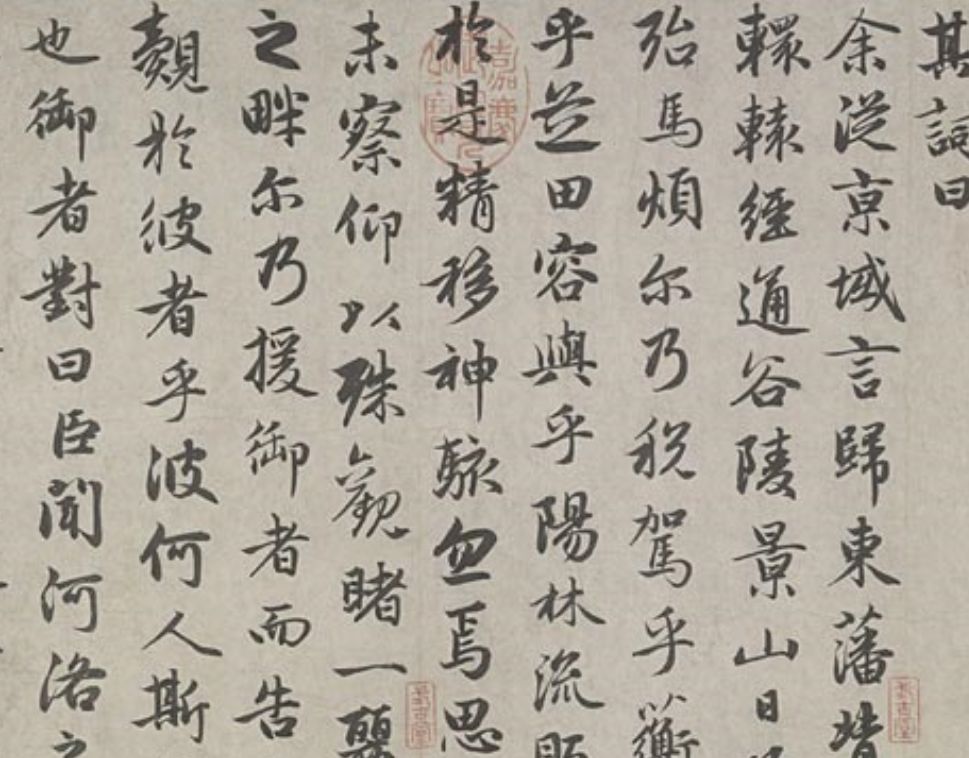 其詞曰
余從京域言歸東藩背
轘轅經通谷陵景山日
殆馬煩尔乃稅駕乎蘅
乎芝田容與乎陽林流眄
於是精移神駭忽焉思
未察仰以殊觀睹一麗
之畔尔乃援御者而告
覿於彼者乎彼何人斯
也御者對曰臣聞河洛之